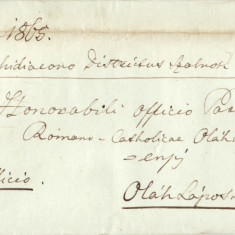 1865.
hidiacono Districtus Szolnok
Honorabili Officio Pa
Romano-Catholicae Oláh
enſis
icio.
Oláh Láposon